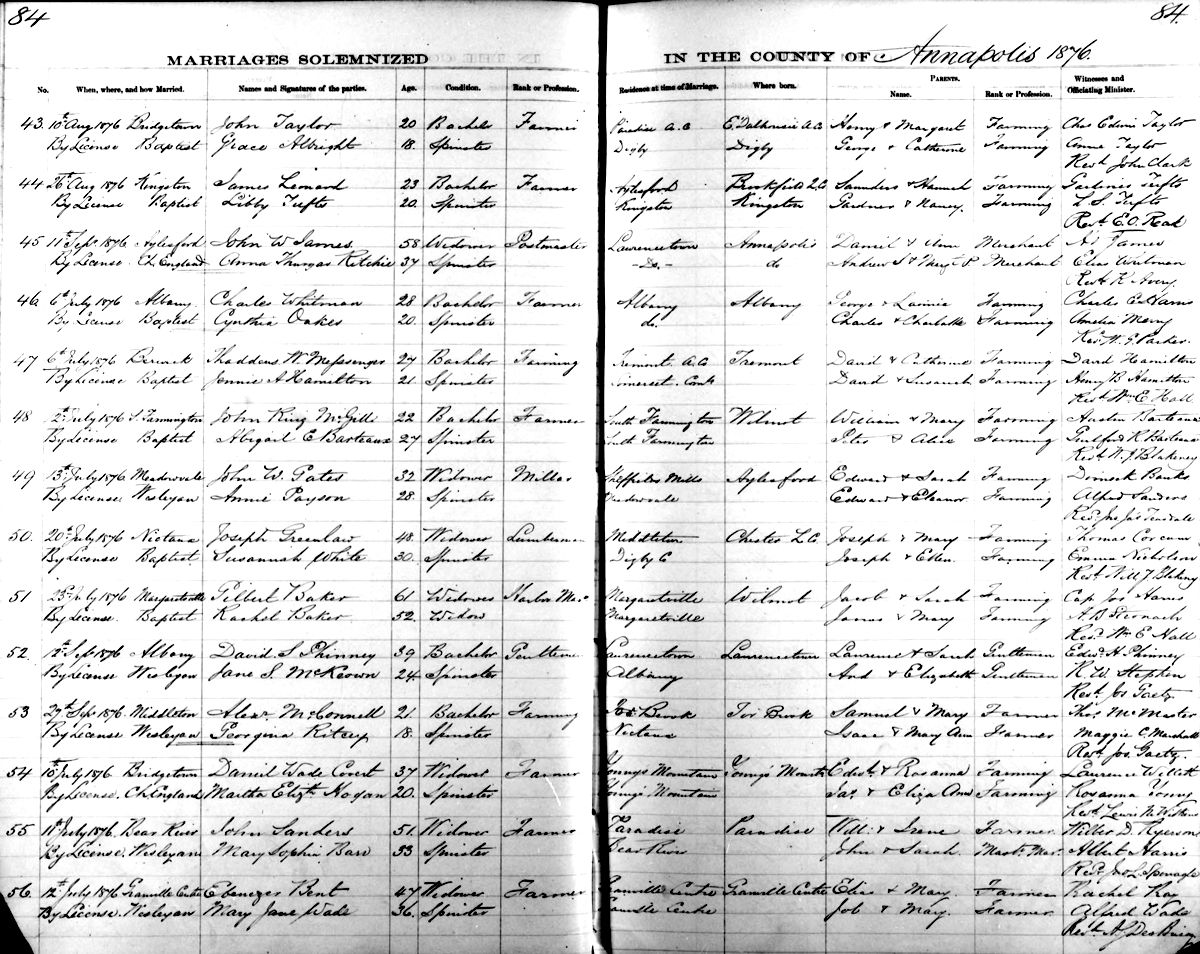 84
84.
MARRIAGES SOLEMNIZED IN THE COUNTY OF Annapolis 1876.
No. When, where, and how Married. Names and Signatures of the parties. Age. Condition. Rank or Profession. Residence at time of Marriage. Where born. PARENTS. Name. Rank or Profession. Witnesses and Officiating Minister.
43. 10th Aug 1876 Bridgetown John Taylor 20 Bachelor Farmer Paradise A.C. E. Dalhousie A.C. Henry & Margaret Farming Chas Edwin Taylor
By License Baptist Grace Albright 18. Spinster Digby Digby George & Catherine Farming Anne Taylor
Revd. John Clark
44 26th Aug 1876 Kingston James Leonard 23 Bachelor Farmer Aylesford Brookfield Q.C. Saunders & Hannah Farming Tufts
By License Baptist Libby Tufts 20. Spinster Kingston Kingston Gardner & Nancy. Farming L. S. Tufts
Revd. E.O. Read
45 11th Sept 1876 Aylesford John W James 58 Widower Postmaster Lawrencetown Annapolis Daniel & Ann Merchant James
By License Ch. England Anna Thurgar Ritchie 37 Spinster -Do.- do Andrew S & Margt P Merchant
Revd R Avery
46 6th July 1876 Albany Charles Whitman 28 Bachelor Farmer Albany Albany George & Lavinia Farming Charles
By License Baptist Cynthia Oakes 20. Spinster do. Charles & Charlotte Farming Amelia Merry
Revd. W. G. Parker
47 6th July 1876 Berwick Thaddeus W Messenger 27 Bachelor Farming Tremont A.C. Tremont David & Catherine Farming David Hamilton
By License Baptist Jennie A Hamilton 21. Spinster Somerset. David & Susanah Farming Henry B Hamilton
Revd Wm E Hall
48 2nd July 1876 S. Farmington John King McGill 22 Bachelor Farmer South Farmington Wilmot William & Mary Farming Barteaux
By License Baptist Abigail E Barteaux 27 Spinster South Farmington Peter & Alice Farming Guilford R Barteaux
Revd W. J. Blakeney
49 13th July 1876 Meadowvale John W. Gates 32 Widower Miller Sheffields Mills Aylesford Edward & Sarah Farming Dimock Banks
By License. Wesleyan Annie Payson 28. Spinster Meadowvale Edward & Eleanor Farming Alfred Sanders
Revd. Jno Jos Teasdale
50. 20th July 1876 Nictaux Joseph Greenlaw 48. Widower Lumberman Middleton Chester L.C. Joseph & Mary Farming Thomas Corcum
By License Baptist Susannah White 30. Spinster Digby C Joseph & Ellen. Farming Emma Nicholson
Revd Will J Blakeney
51 23rd July 1876 Margaretville Gilbert Baker 61 Widower Harbor Mas. Margaretville Wilmot Jacob & Sarah Farming Cap Jos Harris
By License. Baptist Rachel Baker 52. Widow Margaretville James & Mary Farming A B Stronach
Revd. Wm E Hall
52. 12th Sept 1876 Albany David S. Phinney 39 Bachelor Gentleman Lawrencetown Lawrencetown Lawrence & Sarah Gentleman Edwd. H. Phinney
By License Wesleyan Jane S. McKeown 24 Spinster Albany And & Elizabeth Gentleman R. W. Stephen
Revd. Jos Gaetz
53 27th Sept 1876. Middleton Alexr McConnell 21. Bachelor Farming Tor Brook Tor Brook Samuel & Mary Farmer Thos McMaster
By License Wesleyan Georgina Ritcey 18. Spinster Nictaux Isaac & Mary Ann Farmer Maggie C. Marshall
Revd. Jos. Gaetz.
54 10th July 1876 Bridgetown Daniel Wade Covert 37 Widower Farmer Youngs Mountain Young's Mount. Edwd. & Rosanna Farming Laurence Willett
By License. Ch. England Martha Elizth Hogan 20. Spinster Youngs Mountain Jas. & Eliza Ann Farming Rosanna Young
Revd. Lewis
55 11th July 1876. Bear River John Sanders 51. Widower Farmer Paradise Paradise Will. & Irene Farmer. D. Ryerson
By License. Wesleyan Mary Sophia Barr 33 Spinster Bear River John & Sarah. Mast. Mar. Albert Harris
Revd. Sponagle
56. 12th July 1876 Granville Centre Ebenezer Bent 47 Widower Farmer Granville Centre Granville Centre Elias & Mary. Farmer Rachel Ray
By License. Wesleyan Mary Jane Wade 36. Spinster Granville Centre Job & Mary. Farmer. Alfred Wade
Revd. A. S. DesBrisay